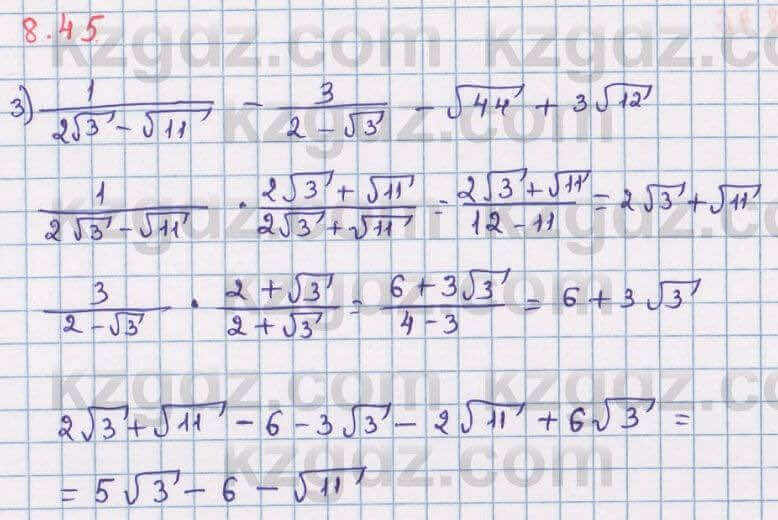 8.45
3) 1/(2√3 - √11) - 3/(2 - √3) - √44 + 3√12
1/(2√3 - √11) · (2√3 + √11)/(2√3 + √11) = (2√3 + √11)/(12 - 11) = 2√3 + √11
3/(2 - √3) · (2 + √3)/(2 + √3) = (6 + 3√3)/(4 - 3) = 6 + 3√3
2√3 + √11 - 6 - 3√3 - 2√11 + 6√3 =
= 5√3 - 6 - √11
kzgdz.com
kzgdz.com
kzgdz.com
kzgdz.com
kzgdz.com